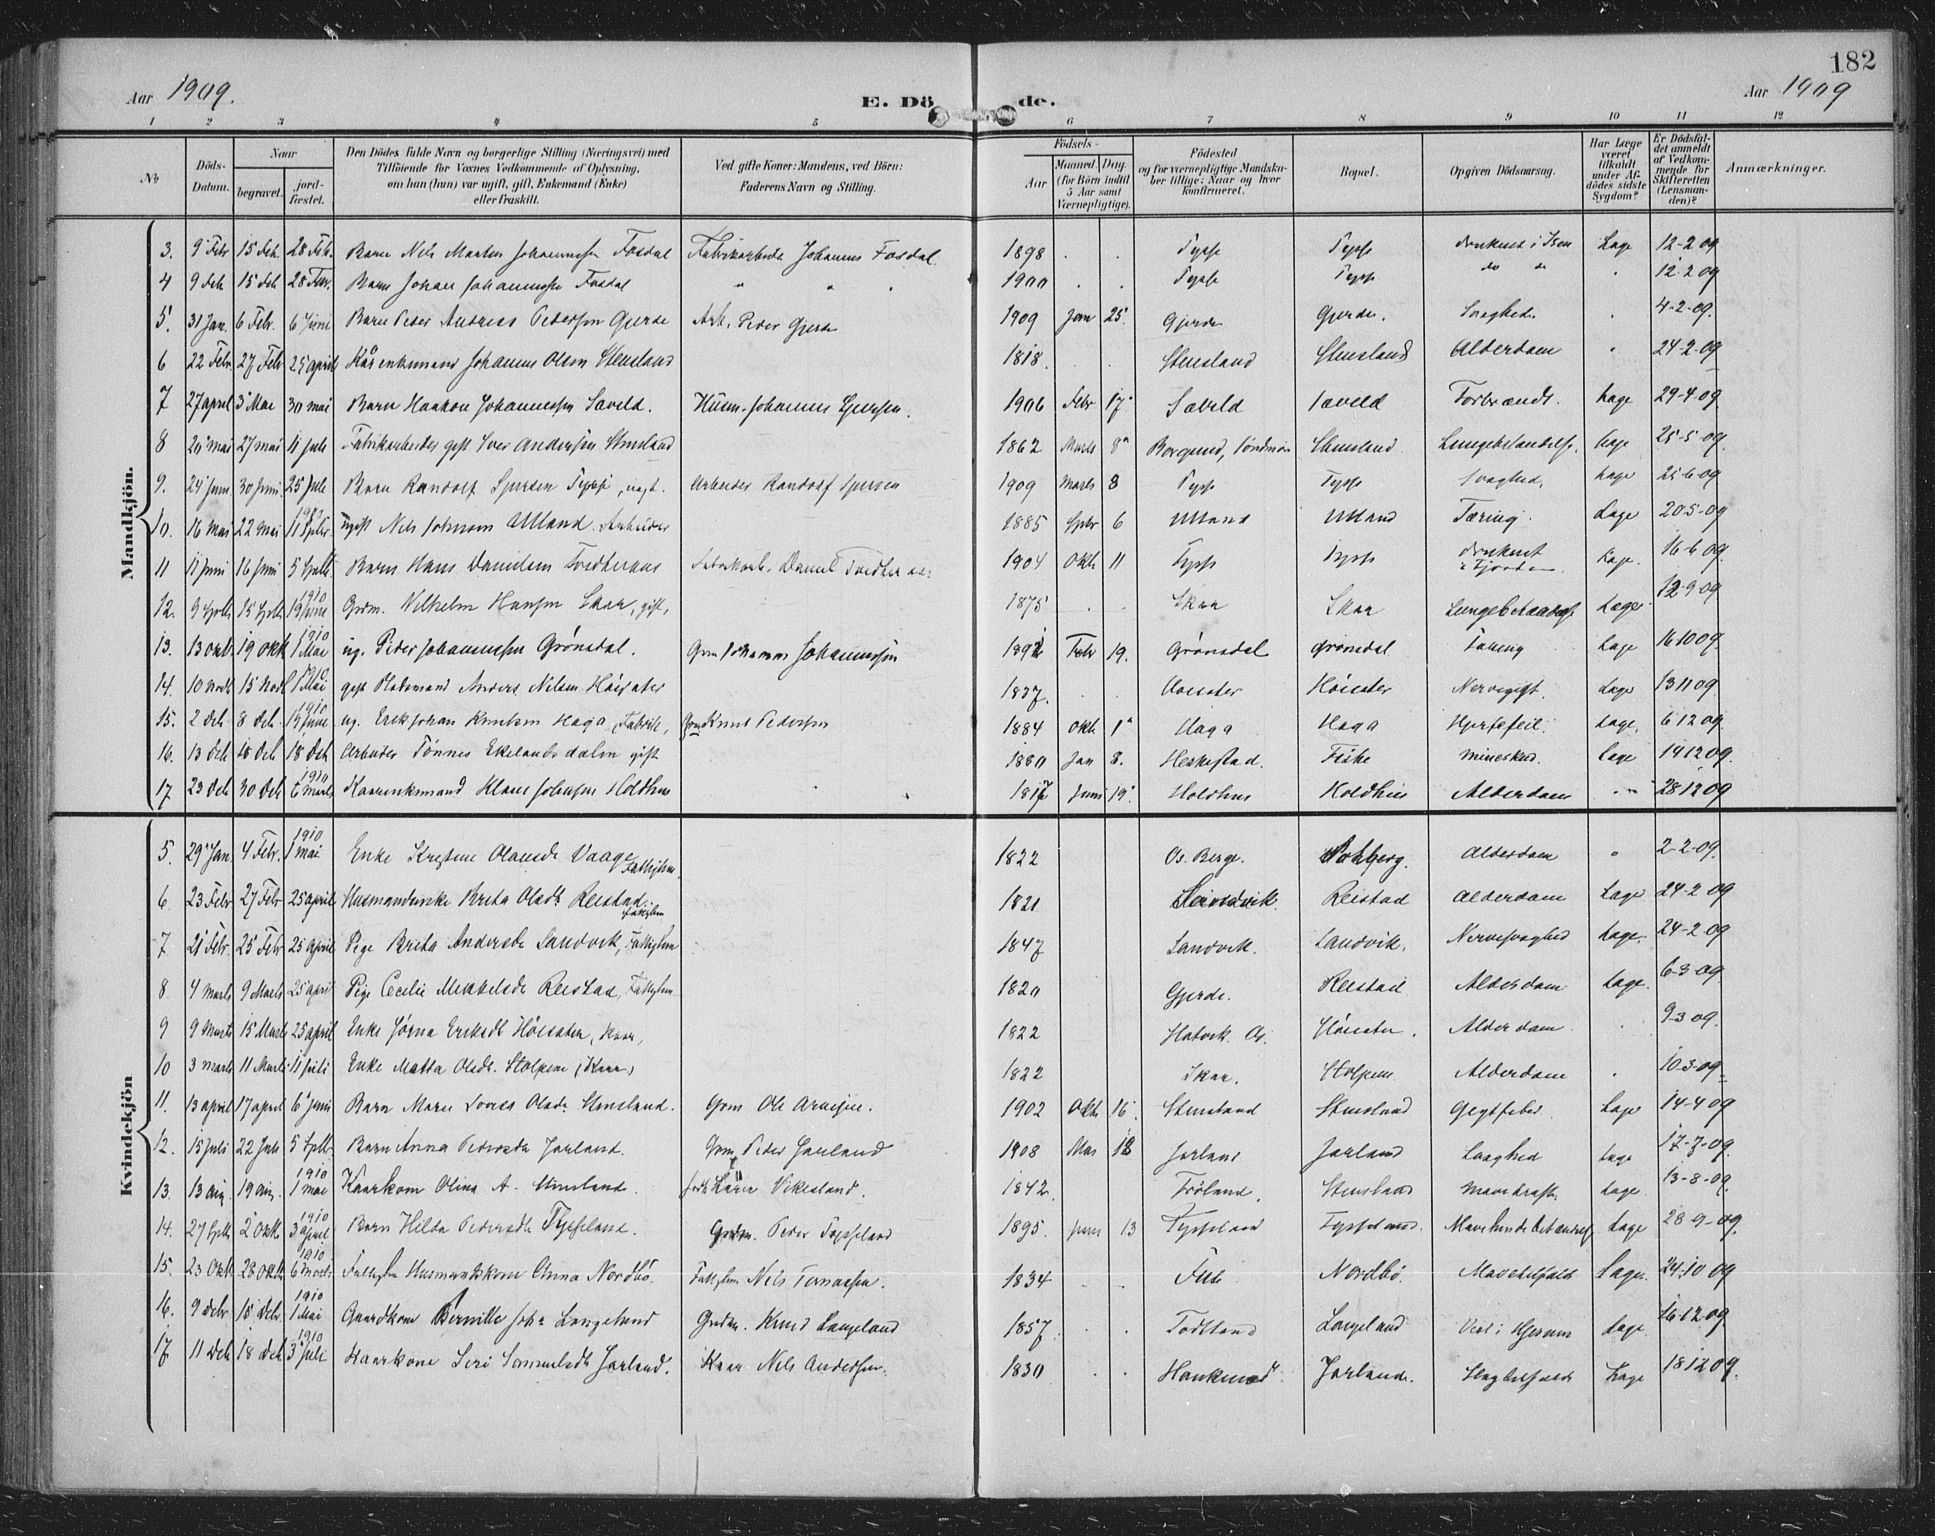 182
Aar 1909.
E. Dö de.
Aar 1909
1 2 3 4 5 6 7 8 9 10 11 12
№
Döds-Datum.
Naar
begravet.
jord-fæstet.
Den Dödes fulde Navn og borgerlige Stilling (Næringsvei) med Tilföiende for Voxnes Vedkommende af Oplysning, om han (hun) var ugift, gift, Enkemand (Enke) eller fraskilt.
Ved gifte Koner: Mandens, ved Börn: Faderens Navn og Stilling.
Födsels-
Aar
Maaned. Dag.
(for Börn indtil 5 Aar samt Værnepligtige).
Födested og for værnepligtige Mandskaber tillige: Naar og hvor konfirmeret.
Bopæl.
Opgiven Dödsaarsag.
Har Læge været tilkaldt under Afdödes sidste Sygdom?
Er Dödsfaldet anmeldt af Vedkommende for Skifteretten (Lensmanden)?
Anmærkninger.
Mandkjön.
3. 9 Febr 15 Feb. 28 Feb. Barn Nils Martin Johannessen Fosdal Fabrikarbeider Johannes Fosdal. 1898 Tysse Tysse druknet i Isen Læge 12-2 09
4 9 Feb 15 Feb 28 Febr. Barn Johan Johannessen Fosdal " " 1900 Tysse Tysse do do 12-2 09
5. 31 Jan. 6 Febr. 6 Juni Barn Peder Andreas Pedersen Gjerde Arb. Peder Gjerde 1909 Jan 25. Gjerde Gjerde. Svaghed. 4-2-09.
6 22 Febr. 27 Febr 25 april Kårenkemand Johannes Olsen Stensland 1818. Stensland Stensland Alderdom " 24-2-09
7 27 april 3 Mai 30 mai Barn Haakon Johannessen Sæveld. Husm. Johannes 1906 Febr 17 Sæveld Sæveld Forbrændt. Læge 29-4-09
8 20 mai 27 mai 11 juli Fabrikarbeider gift Iver Andersen Stensland 1862 Marts 8 Borgund, Söndmör Stensland Lungebetændelse. Læge 25-5-09.
9. 24 Juni 30 Juni 25 Juli Barn Randolf Tysse, Arbeider Randolf 1909 Marts 8 Tysse Tysse Svaghed. Læge 25-6-09
10. 16 Mai 22 Mai 1910 11 Septbr. ugift Nils Johnsen Ulland. Arbeider 1885 Sepbr 6 Ulland Ulland Tæring. Læge 20-5-09
11 11 Juni 16 Juni 5 Septb Barn Hans Danielsen Tvedteraas Fabrikarb. Daniel Tvedteraas 1904 Okt 11 Tysse Tysse druknet i Fjorden. Læge. 16-6 09.
12. 9 Septb 15 Septb 1910 19 Gbrm. Vilhelm Hansen Skaar, gift, 1875 Skaar Skaar Lungebetændelse Læge 12-9-09
13. 13 okt. 19 okt 1910 1 Mai ug. Peder Johannessen Grönsdal. Gbm Johannes Johannessen 1892 Febr 19. Grönsdal Grönsdal Tæring Læge 16 10 09.
14. 10 Novb 15 Novb 1910 1 Mai gift Pladsmand Anders Nilsen Höisæter 1837. Höisæter Höisæter Nervegigt. Læge 13 11 09
15. 2 Deb. 8 Deb. 1910 19 ug. Erik Johan Knutsen Haga, (Fabrik, Gbm Knut Pedersen 1884 Okt 1 Haga Haga Hjertefeil. Læge. 6 12 09.
16. 13 deb 18 deb 18 Deb Arbeider Tönnes Ekelandsdalen gift 1880 Jan 8. Heskestad. Fiske mineskud. Læge 14 12 09.
17 23 deb 30 Deb 1910 6 Marts Kaarenkemand Klaus Johnsen Holdhus 1817 Juni 19 Holdhus Holdhus Alderdom " 28 12 09
Kvindekjön
5. 29 Jan. 4 Febr. 1910 1 mai Enke Kristine Olausdt Vaage Fattiglem. 1822 Os. Berge. Alderdom " 2-2-09.
6 23 Febr 27 Febr 25 april Husmandsenke Brita Olsdt. Reistad. Fattiglem 1821 Reistad Alderdom Læge 24-2 09
7 21 Febr. 25 Febr 25 april Pige Brita Andersdt Sandvik, Fattiglem 1847 Sandvik. Sandvik. Nervesvaghed Læge. 24-2 09
8 4 marts 9 Marts 25 april Pige Cecilie Mikkelsdt Reistad, Fattiglem 1820 Gjerde. Reistad Alderdom Læge. 6-3-09.
9 9 Marts 15 Marts 25 april Enke Jörna Eriksdt Höisæter, Kaar, 1822 Hatvik. Os. Höisæter. Alderdom 9-3 09.
10 3 marts 11 Marts 11 Juli Enke Marta Olsdt. Stolpem (Kaar) 1822 Skaar. Stolpem Alderdom 10-3-09
11. 13 april 17 april 6 Juni Barn Marie Lovisa Olsdt. Stensland. Gbm Ole Arnesen. 1902 Okt. 16. Stensland Stensland Gigtfeber Læge 14-4-09
12. 15 juli 22 Juli 5 Septb Barn Anna Pedersdt Jarland. Gbm Peder Jarland 1908 Mai 18 Jarland Jarland Svaghed Læge 17-7-09.
13. 13 aug. 19 aug. 1910 1 mai Kaarkone Olina A. Stensland. Vikesland. 1842. Tröland. Stensland Mavekræft. Læge 13-8-09.
14. 27 Septb 2 Oktb 1910 3 april Barn Hilda Pedersdt Tysseland. Gbdm. Peder Tysseland 1895. Juni 13 Tysseland Tysseland. Mavehindebetændelse Læge 28-9-09.
15. 23 Okt 28 Okt. 1910 6 Marts Fattiglem Husmandskone Anna Nordbö. Fattiglem Nils 1834 Fuse Nordbö. Læge. 24-10 09
16. 9 Debr 15 Debr. 1910 1 Mai Gaardkone Pernille Langeland Gbdm. Knud Langeland 1857 Todtland Langeland Vand i Hjernen Læge 16-12 09
17 11 Deb 18 Deb. 1910 3 Juli Kaarkone Siri Samuelsdt Jarland. Kaar Nils Andersen. 1830 Jarland. Slagtilfælde Læge 18 12 09.